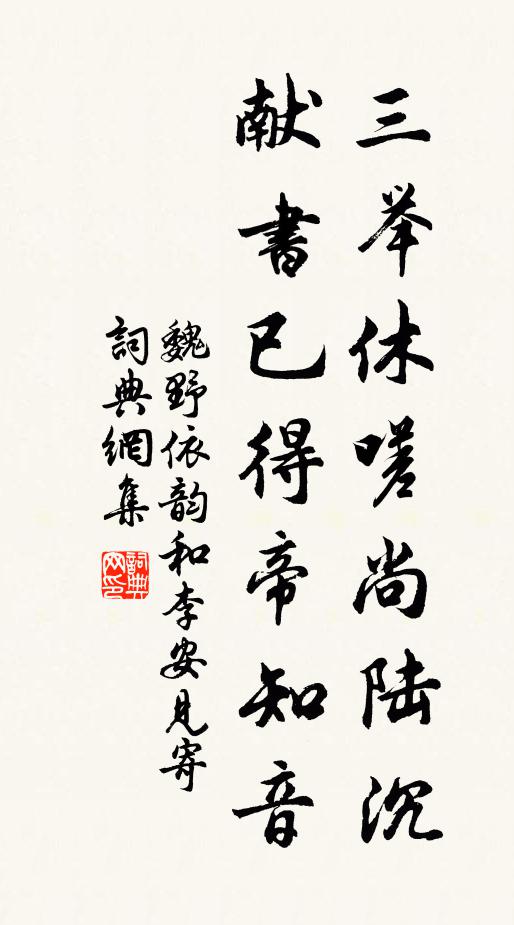 三举休嗟尚陆沉
献書已得帝知音
魏野依韵和李安見寄
詞典網集
詞典
网印